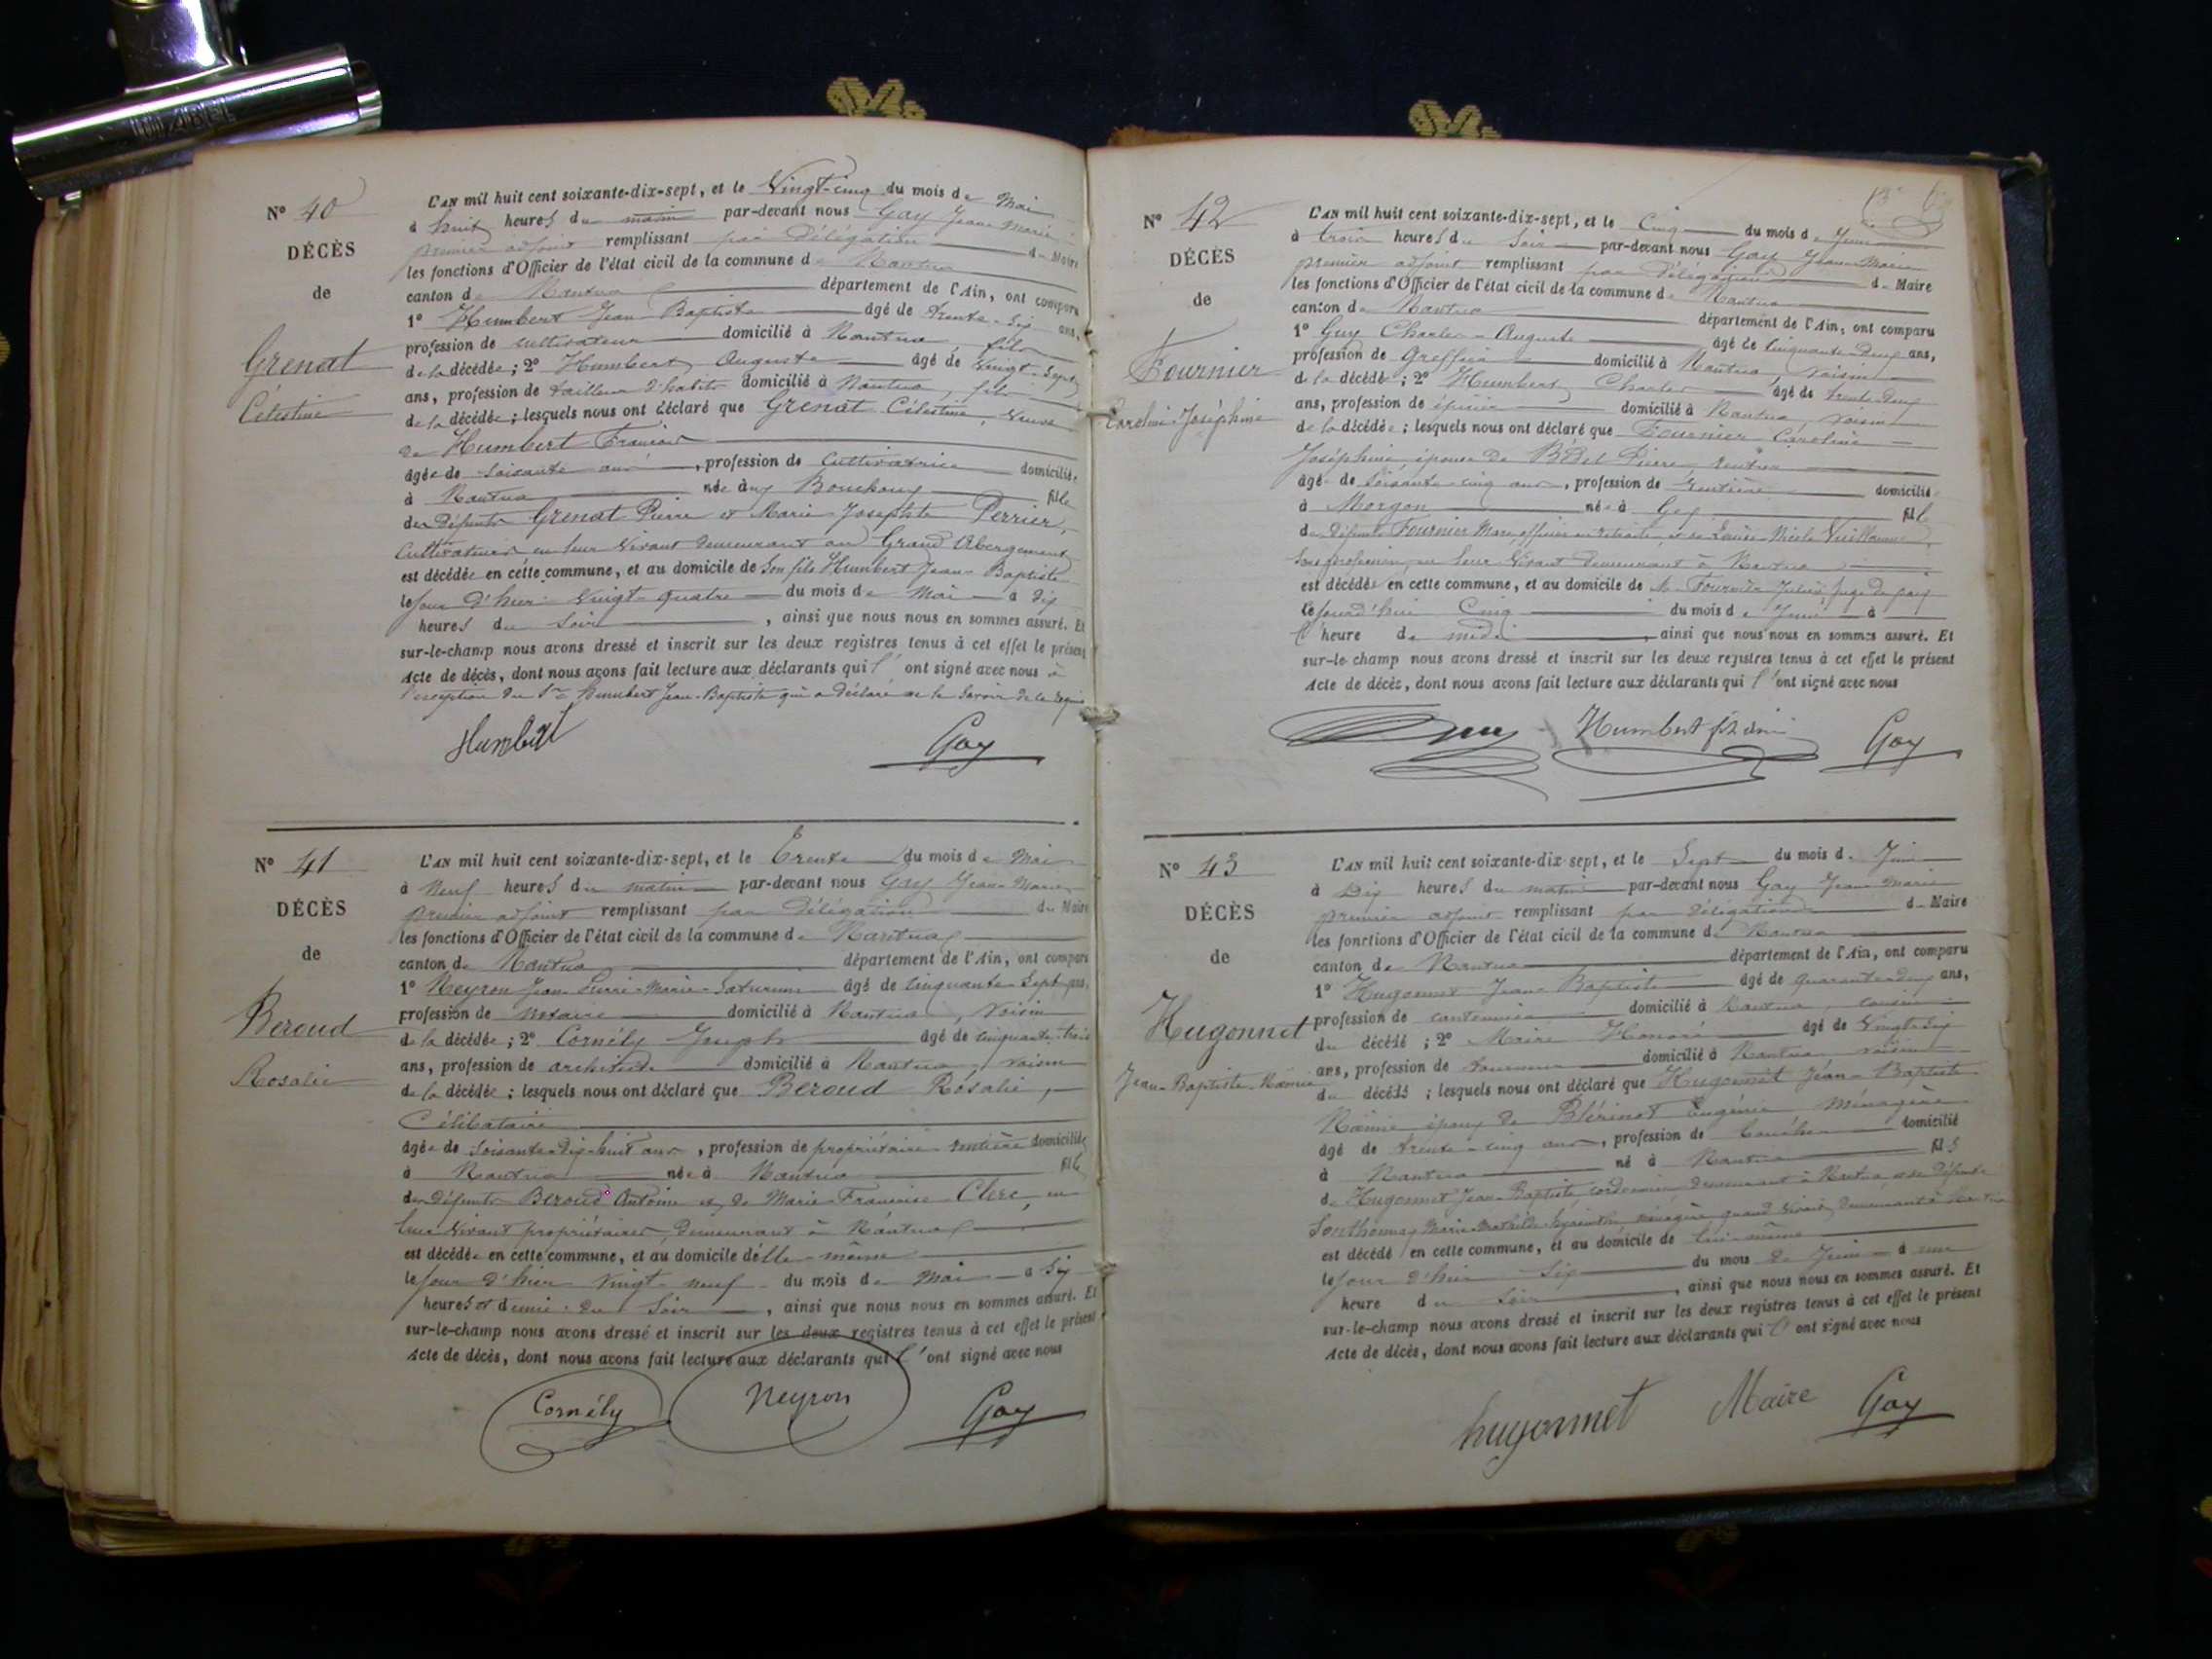 N° 40
DÉCÈS
de
Grenat
Célestine
L'AN mil huit cent soixante-dix-sept, et le Vingt-cinq du mois de Mai
à huit heures du matin par-devant nous Gay Jean Marie
premier adjoint remplissant par Délégation du Maire
les fonctions d'Officier de l'état civil de la commune de Nantua
canton de Nantua département de l'Ain, ont comparu
1° Humbert Jean Baptiste âgé de trente-six ans,
profession de cultivateur domicilié à Nantua, fils
de la décédée ; 2° Humbert Auguste âgé de Vingt-Sept
ans, profession de tailleur d'habits domicilié à Nantua, fils
de la décédée ; lesquels nous ont déclaré que Grenat Célestine, Veuve
de Humbert François
âgée de soixante ans, profession de Cultivatrice domiciliée
à Nantua née aux Bouchoux fille
des défunts Grenat Pierre et Marie Josephte Perrier,
Cultivateurs en leur Vivant demeurant au Grand Abergement
est décédée en cette commune, et au domicile de Son fils Humbert Jean-Baptiste
le jour d'hier Vingt-quatre du mois de Mai à dix
heures du Soir, ainsi que nous nous en sommes assuré. Et
sur-le-champ nous avons dressé et inscrit sur les deux registres tenus à cet effet le présent
Acte de décès, dont nous avons fait lecture aux déclarants qui l'ont signé avec nous à
l'exception du Sr Humbert Jean-Baptiste qui a déclaré ne le Savoir de ce requis
Humbert
Gay
N° 41
DÉCÈS
de
Beroud
Rosalie
L'AN mil huit cent soixante-dix-sept, et le Trente du mois de Mai
à Neuf heures du matin par-devant nous Gay Jean-Marie
premier adjoint remplissant par Délégation du Maire
les fonctions d'Officier de l'état civil de la commune de Nantua
canton de Nantua département de l'Ain, ont comparu
1° Neyron Jean Pierre-Marie-Saturnin âgé de Cinquante-Sept ans,
profession de notaire domicilié à Nantua, Voisin
de la décédée ; 2° Cornély Joseph âgé de cinquante-trois
ans, profession de architecte domicilié à Nantua, voisin
de la décédée ; lesquels nous ont déclaré que Beroud Rosalie,
Célibataire
âgée de soixante-dix-huit ans, profession de propriétaire-rentière domiciliée
à Nantua née à Nantua fille
des défunts Beroud Antoine et de Marie-Françoise Clerc, en
leur Vivant propriétaires, demeurant à Nantua
est décédée en cette commune, et au domicile d'elle-même
le jour d'hier Vingt-neuf du mois de Mai à Six
heures et demie du Soir, ainsi que nous nous en sommes assuré. Et
sur-le-champ nous avons dressé et inscrit sur les deux registres tenus à cet effet le présent
Acte de décès, dont nous avons fait lecture aux déclarants qui l'ont signé avec nous
Cornély
Neyron
Gay
N° 42
DÉCÈS
de
Fournier
Caroline-Joséphine
L'AN mil huit cent soixante-dix-sept, et le Cinq du mois de Juin
à trois heures du Soir par-devant nous Gay Jean-Marie
premier adjoint remplissant par Délégation du Maire
les fonctions d'Officier de l'état civil de la commune de Nantua
canton de Nantua département de l'Ain, ont comparu
1° Guy Charles-Auguste âgé de Cinquante-Deux ans,
profession de Greffier domicilié à Nantua, voisin
de la décédée ; 2° Humbert Charles âgé de trente-Deux
ans, profession de épicier domicilié à Nantua, voisin
de la décédée ; lesquels nous ont déclaré que Fournier Caroline
Joséphine épouse de Pierre, rentier
âgée de Soixante-cinq ans, profession de Rentière domiciliée
à Morgon née à Gex fille
des défunts Fournier Marc officier en retraite, et de Louise-Nicole Vuillaume
Sans profession, en leur Vivant Demeurant à Nantua
est décédée en cette commune, et au domicile de M. Fournier Juge de paix
le jourd'hui Cinq du mois de Juin à
l'heure de midi, ainsi que nous nous en sommes assuré. Et
sur-le-champ nous avons dressé et inscrit sur les deux registres tenus à cet effet le présent
Acte de décès, dont nous avons fait lecture aux déclarants qui l'ont signé avec nous
Guy
Humbert
Gay
N° 43
DÉCÈS
de
Hugonnet
Jean-Baptiste-Naimie
L'AN mil huit cent soixante-dix-sept, et le Sept du mois de Juin
à Dix heures du matin par-devant nous Gay Jean Marie
premier adjoint remplissant par délégation du Maire
les fonctions d'Officier de l'état civil de la commune de Nantua
canton de Nantua département de l'Ain, ont comparu
1° Hugonnet Jean-Baptiste âgé de quarante-deux ans,
profession de cantonnier domicilié à Nantua, cousin
du décédé ; 2° Maire Honoré âgé de Vingt-six
ans, profession de tourneur domicilié à Nantua, voisin
du décédé ; lesquels nous ont déclaré que Hugonnet Jean-Baptiste
époux de Blérinot Eugénie Ménagère
âgé de trente-cinq ans, profession de domicilié
à Nantua né à Nantua fils
de Hugonnet Jean-Baptiste, cordonnier, demeurant à Nantua, et de défunte
Sonthonnax Marie-Mathilde ménagère quand vivait, demeurant à Nantua
est décédé en cette commune, et au domicile de lui-même
le jour d'hier Six du mois de Juin à une
heure du Soir, ainsi que nous nous en sommes assuré. Et
sur-le-champ nous avons dressé et inscrit sur les deux registres tenus à cet effet le présent
Acte de décès, dont nous avons fait lecture aux déclarants qui l'ont signé avec nous
hugonnet
Maire
Gay